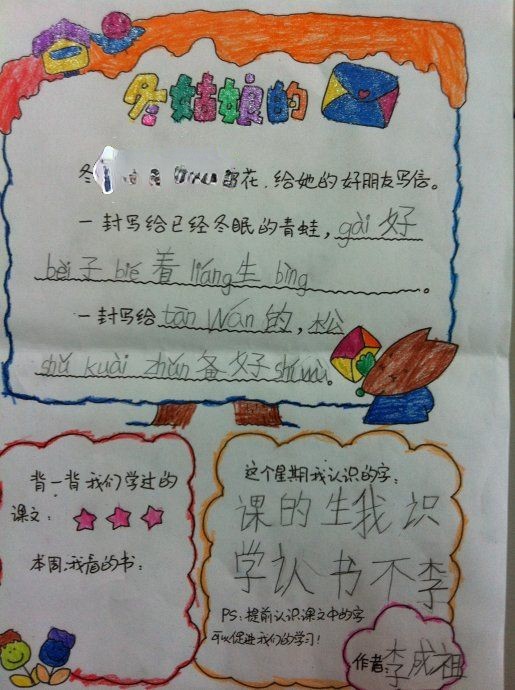 冬姑娘的
冬花，给她的好朋友写信。
一封写给已经冬眠的青蛙，gài 好
bèi 子 bié 着 liáng 生 bìng 。
一封写给 tān wán 的，松
shǔ kuài zhǔn 备 好 shí wù。
背一背我们学过的
课文：
本周，我看的书：
这个星期我认识的字：
课的生我识
学认书不李
PS：提前认识课文中的字
可以促进我们的学习！
作者 李成祖